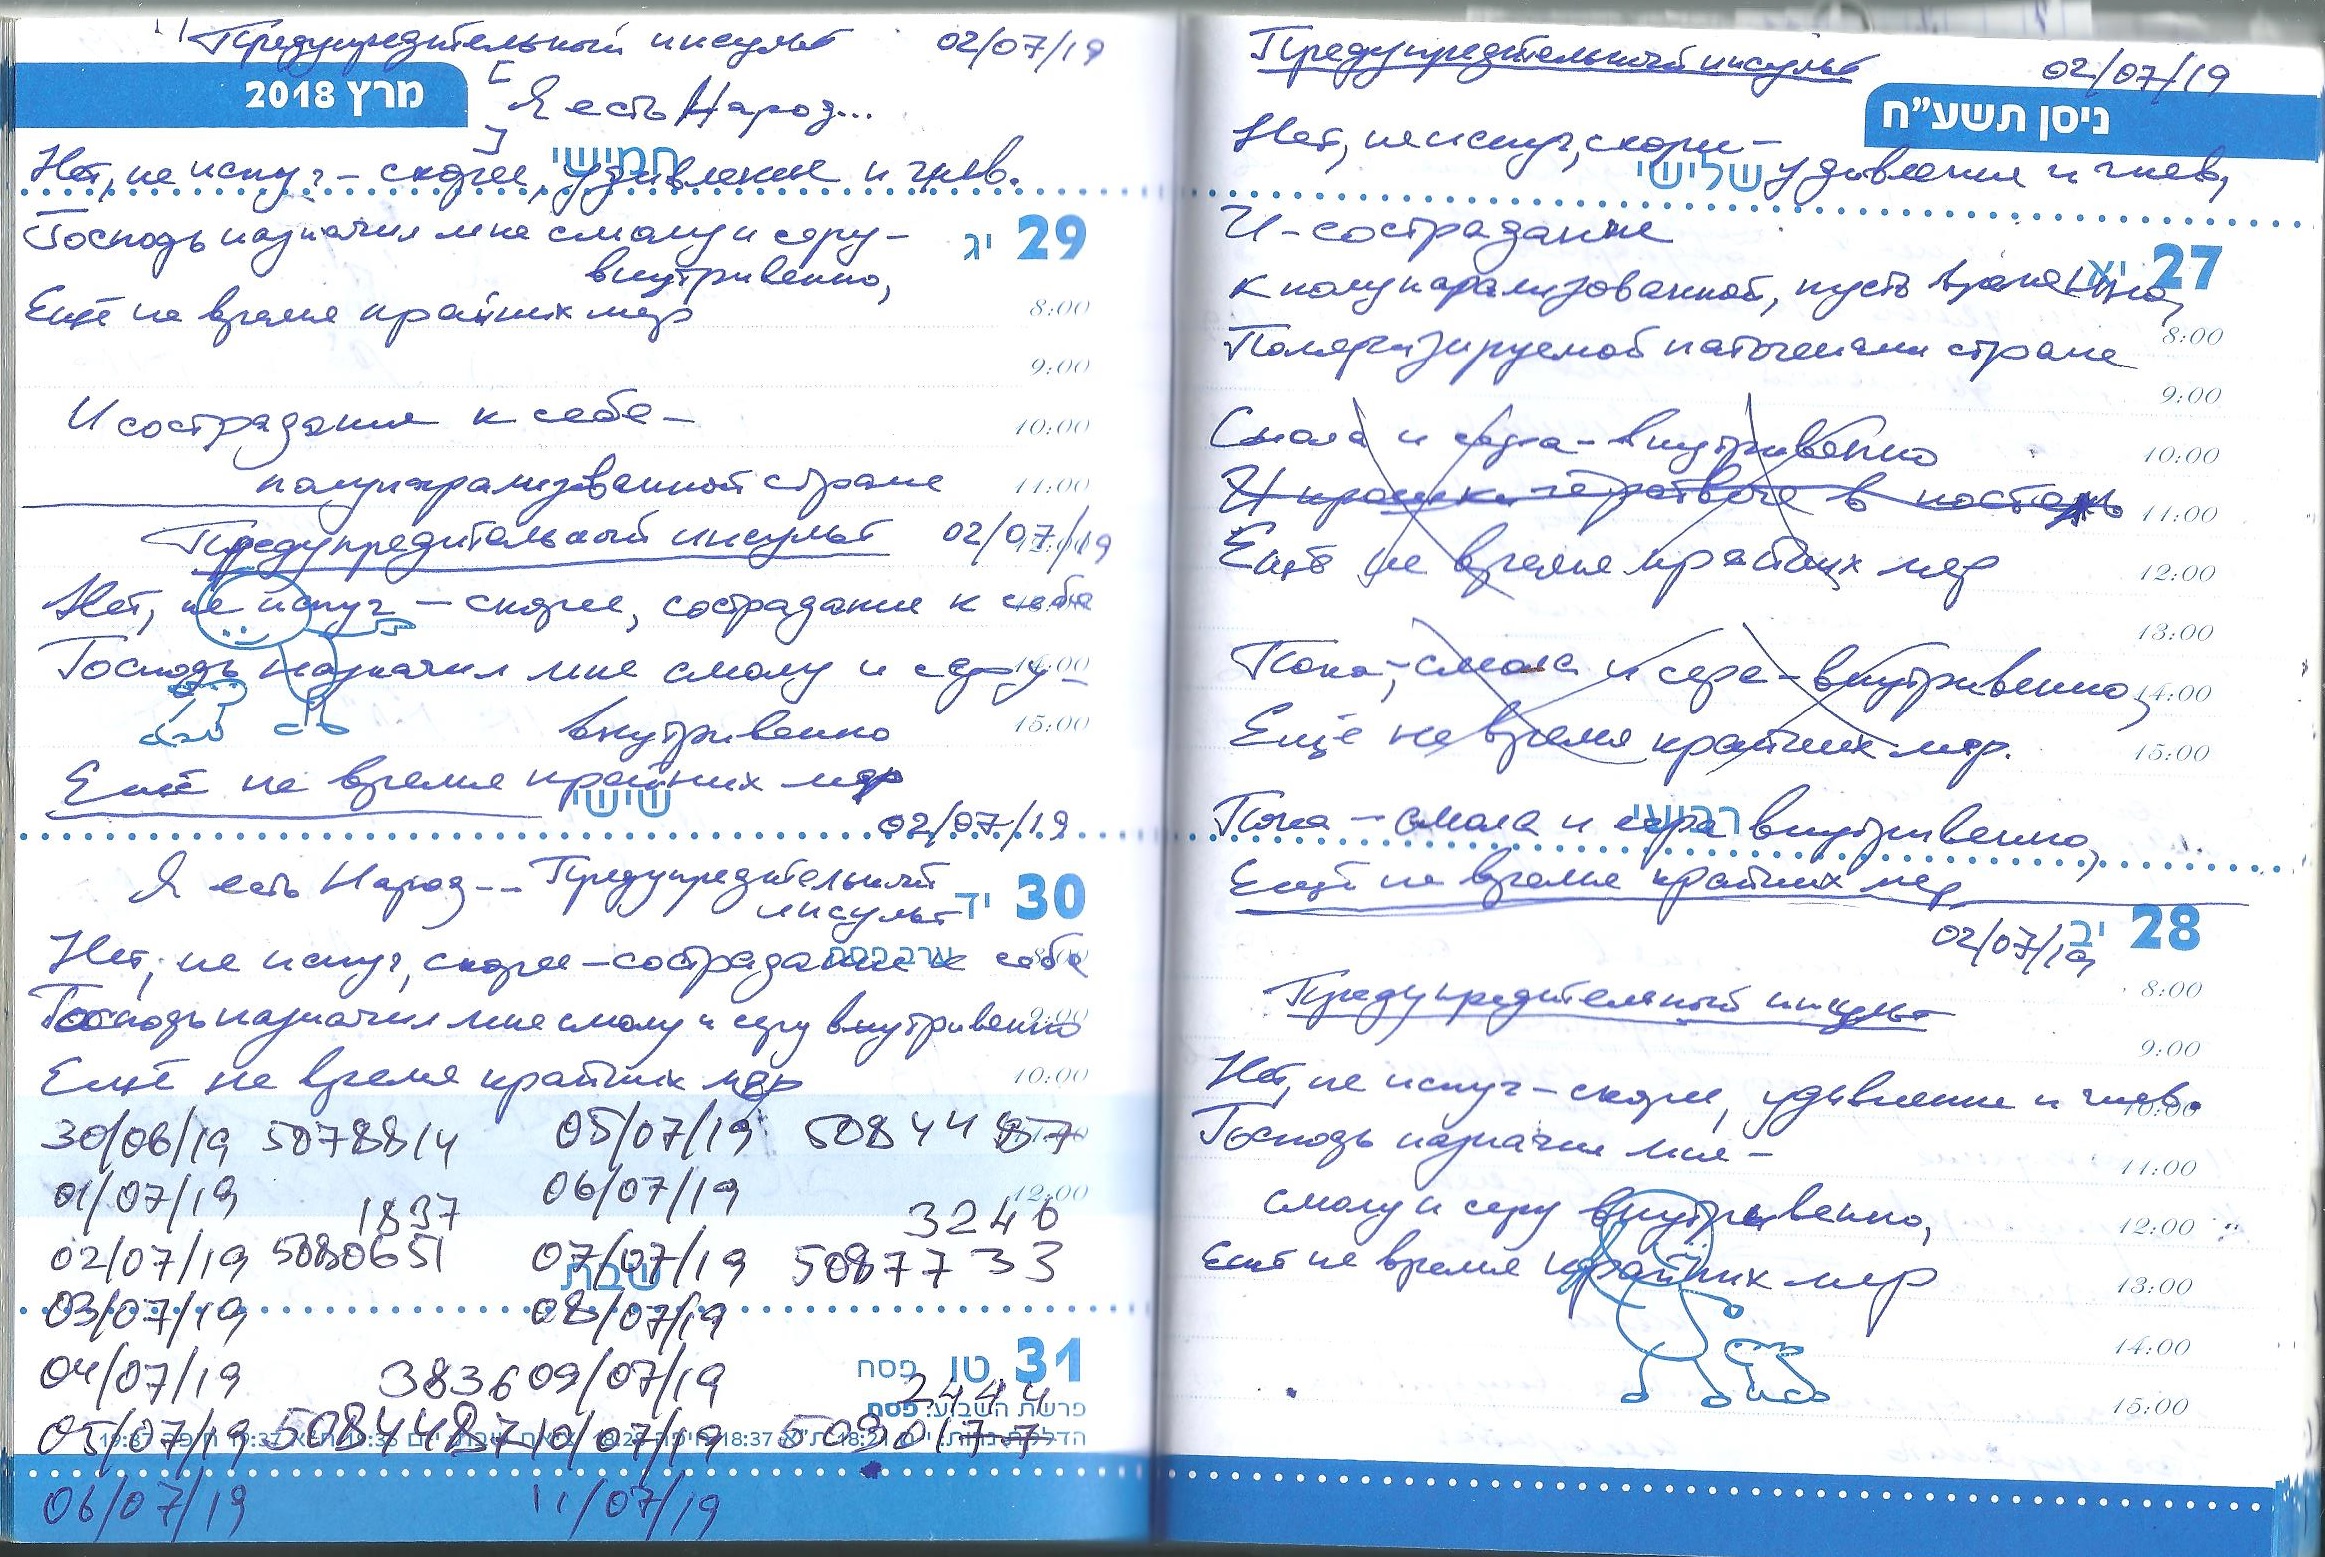 Предупредительный инсульт 02/07/19
מרץ 2018
[Я есть Народ...]
Нет, не испуг – скорее, удивление и гнев.
חמישי
Господь назначил мне смолу и серу –
внутривенно,
29 יג
Ещё не время крайних мер
8:00
9:00
И сострадание к себе –
10:00
полупарализованной стране
11:00
Предупредительный инсульт 02/07/19
Нет, не испуг – скорее, сострадание к себе
Господь назначил мне смолу и серу –
14:00
внутривенно
15:00
Ещё не время крайних мер
שישי
02/07/19
Я есть Народ -- Предупредительный
инсульт
30 יד
ערב פסח
Нет, не испуг, скорее – сострадание к себе
Господь назначил мне смолу и серу внутривенно
9:00
Ещё не время крайних мер
10:00
30/06/19 5078814 05/07/19 5084487
01/07/19 1837 06/07/19 3246
12:00
02/07/19 5080651 07/07/19 5087733
שבת
03/07/19 08/07/19
31 טו פסח
04/07/19 3836 09/07/19 2444
פרשת השבוע: פסח
05/07/19 5084487 10/07/19 5090177
06/07/19 11/07/19
Предупредительный инсульт 02/07/19
ניסן תשע"ח
Нет, не испуг, скорее –
שלישי
удивление и гнев,
И – сострадание
27 יא
к полупарализованной, пусть временно,
Поляризируемой стране
8:00
9:00
Смола и сера – внутривенно
10:00
И в
11:00
Ещё не время крайних мер
12:00
13:00
Пока, – смола и сера – внутривенно,
14:00
Ещё не время крайних мер.
15:00
רביעי
Пока – смола и сера внутривенно,
Ещё не время крайних мер
28 יב
02/07/19
Предупредительный инсульт
8:00
9:00
Нет, не испуг – скорее, удивление и гнев.
10:00
Господь назначил мне –
11:00
смолу и серу внутривенно,
12:00
Ещё не время крайних мер
13:00
14:00
15:00